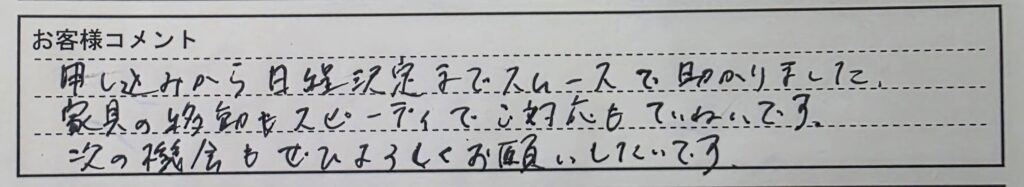 お客様コメント
申し込みから日程決定までスムースで助かりました。
家具の移動もスピーディでご対応もていねいです。
次の機会もぜひよろしくお願いしたいです。